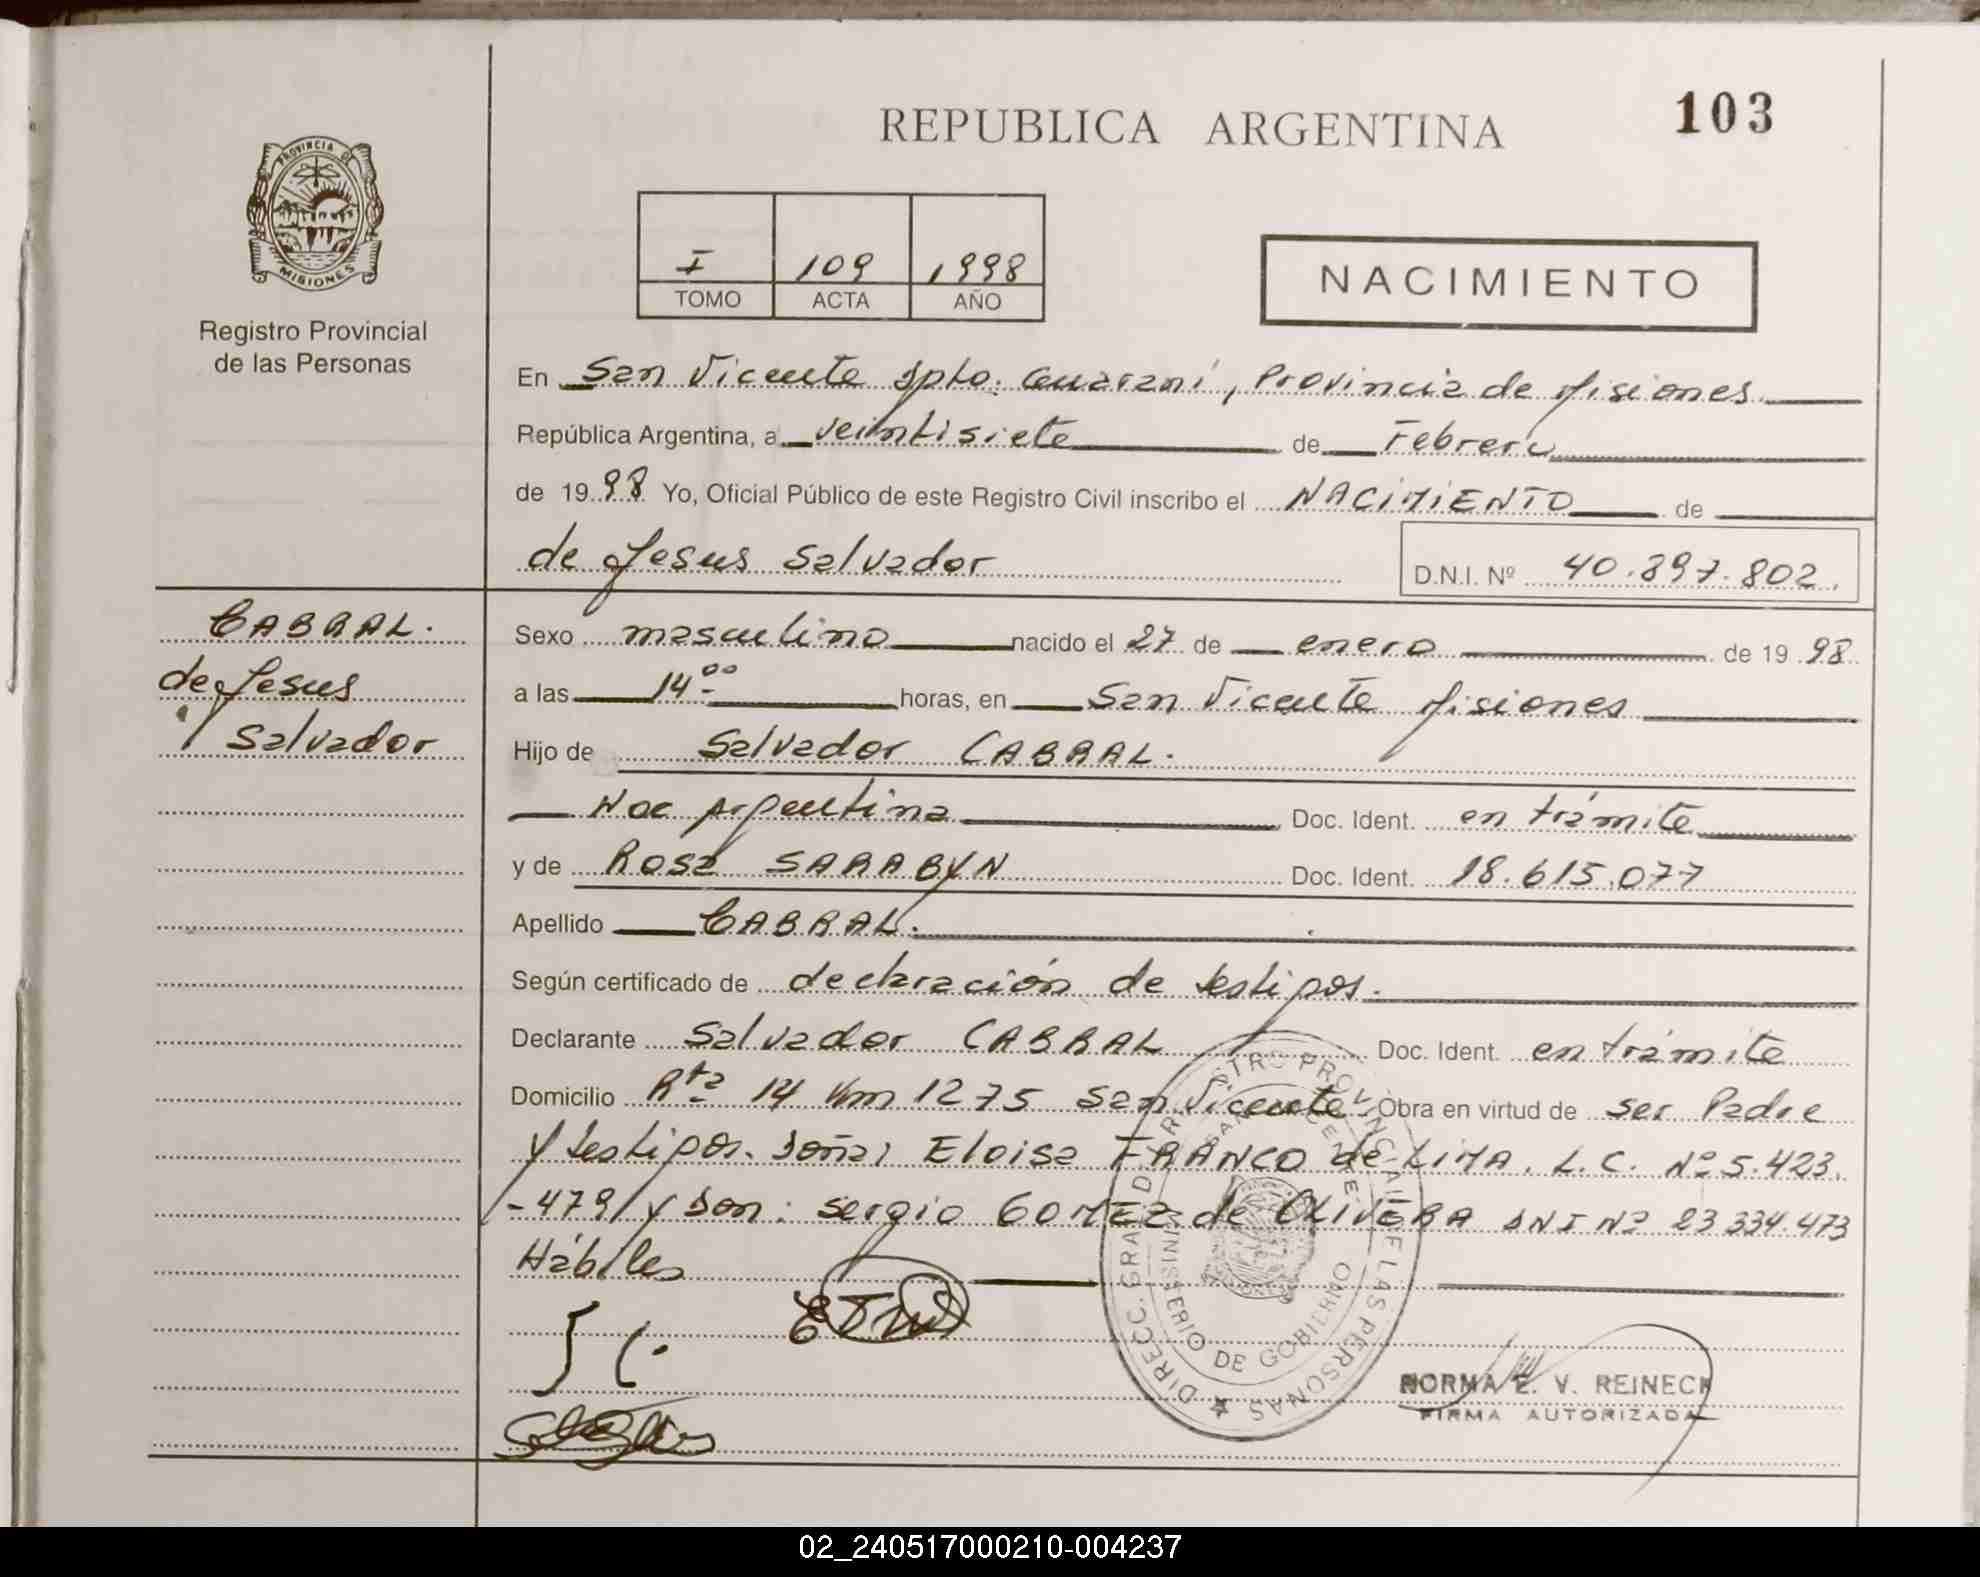 103
REPUBLICA ARGENTINA
PROVINCIA DE
MISIONES
Registro Provincial
de las Personas
I 109 1998
TOMO ACTA AÑO
NACIMIENTO
En San Vicente Dpto. Guaraní, Provincia de Misiones
República Argentina, a veintisiete de Febrero
de 1998 Yo, Oficial Público de este Registro Civil inscribo el NACIMIENTO de
de Jesus Salvador
D.N.I. Nº 40.897.802.
CABRAL.
de Jesus
Salvador
Sexo masculino nacido el 27 de enero de 1998
a las 14.00 horas, en San Vicente Misiones
Hijo de Salvador CABRAL.
Nac Argentina Doc. Ident. en trámite
y de Rosa SARABYN Doc. Ident. 18.615.077
Apellido CABRAL.
Según certificado de declaración de testigos.
Declarante Salvador CABRAL Doc. Ident. en trámite
Domicilio Rta 14 Km 1275 San Vicente Obra en virtud de ser Padre
y testigos. Doña: Eloisa FRANCO de LIMA. L.C. Nº 5.423.
-479/ y Don: Sergio GOMEZ de OLIVERA DNI Nº 23 334.473
Hábiles
NORMA E. V. REINECK
FIRMA AUTORIZADA
02_240517000210-004237